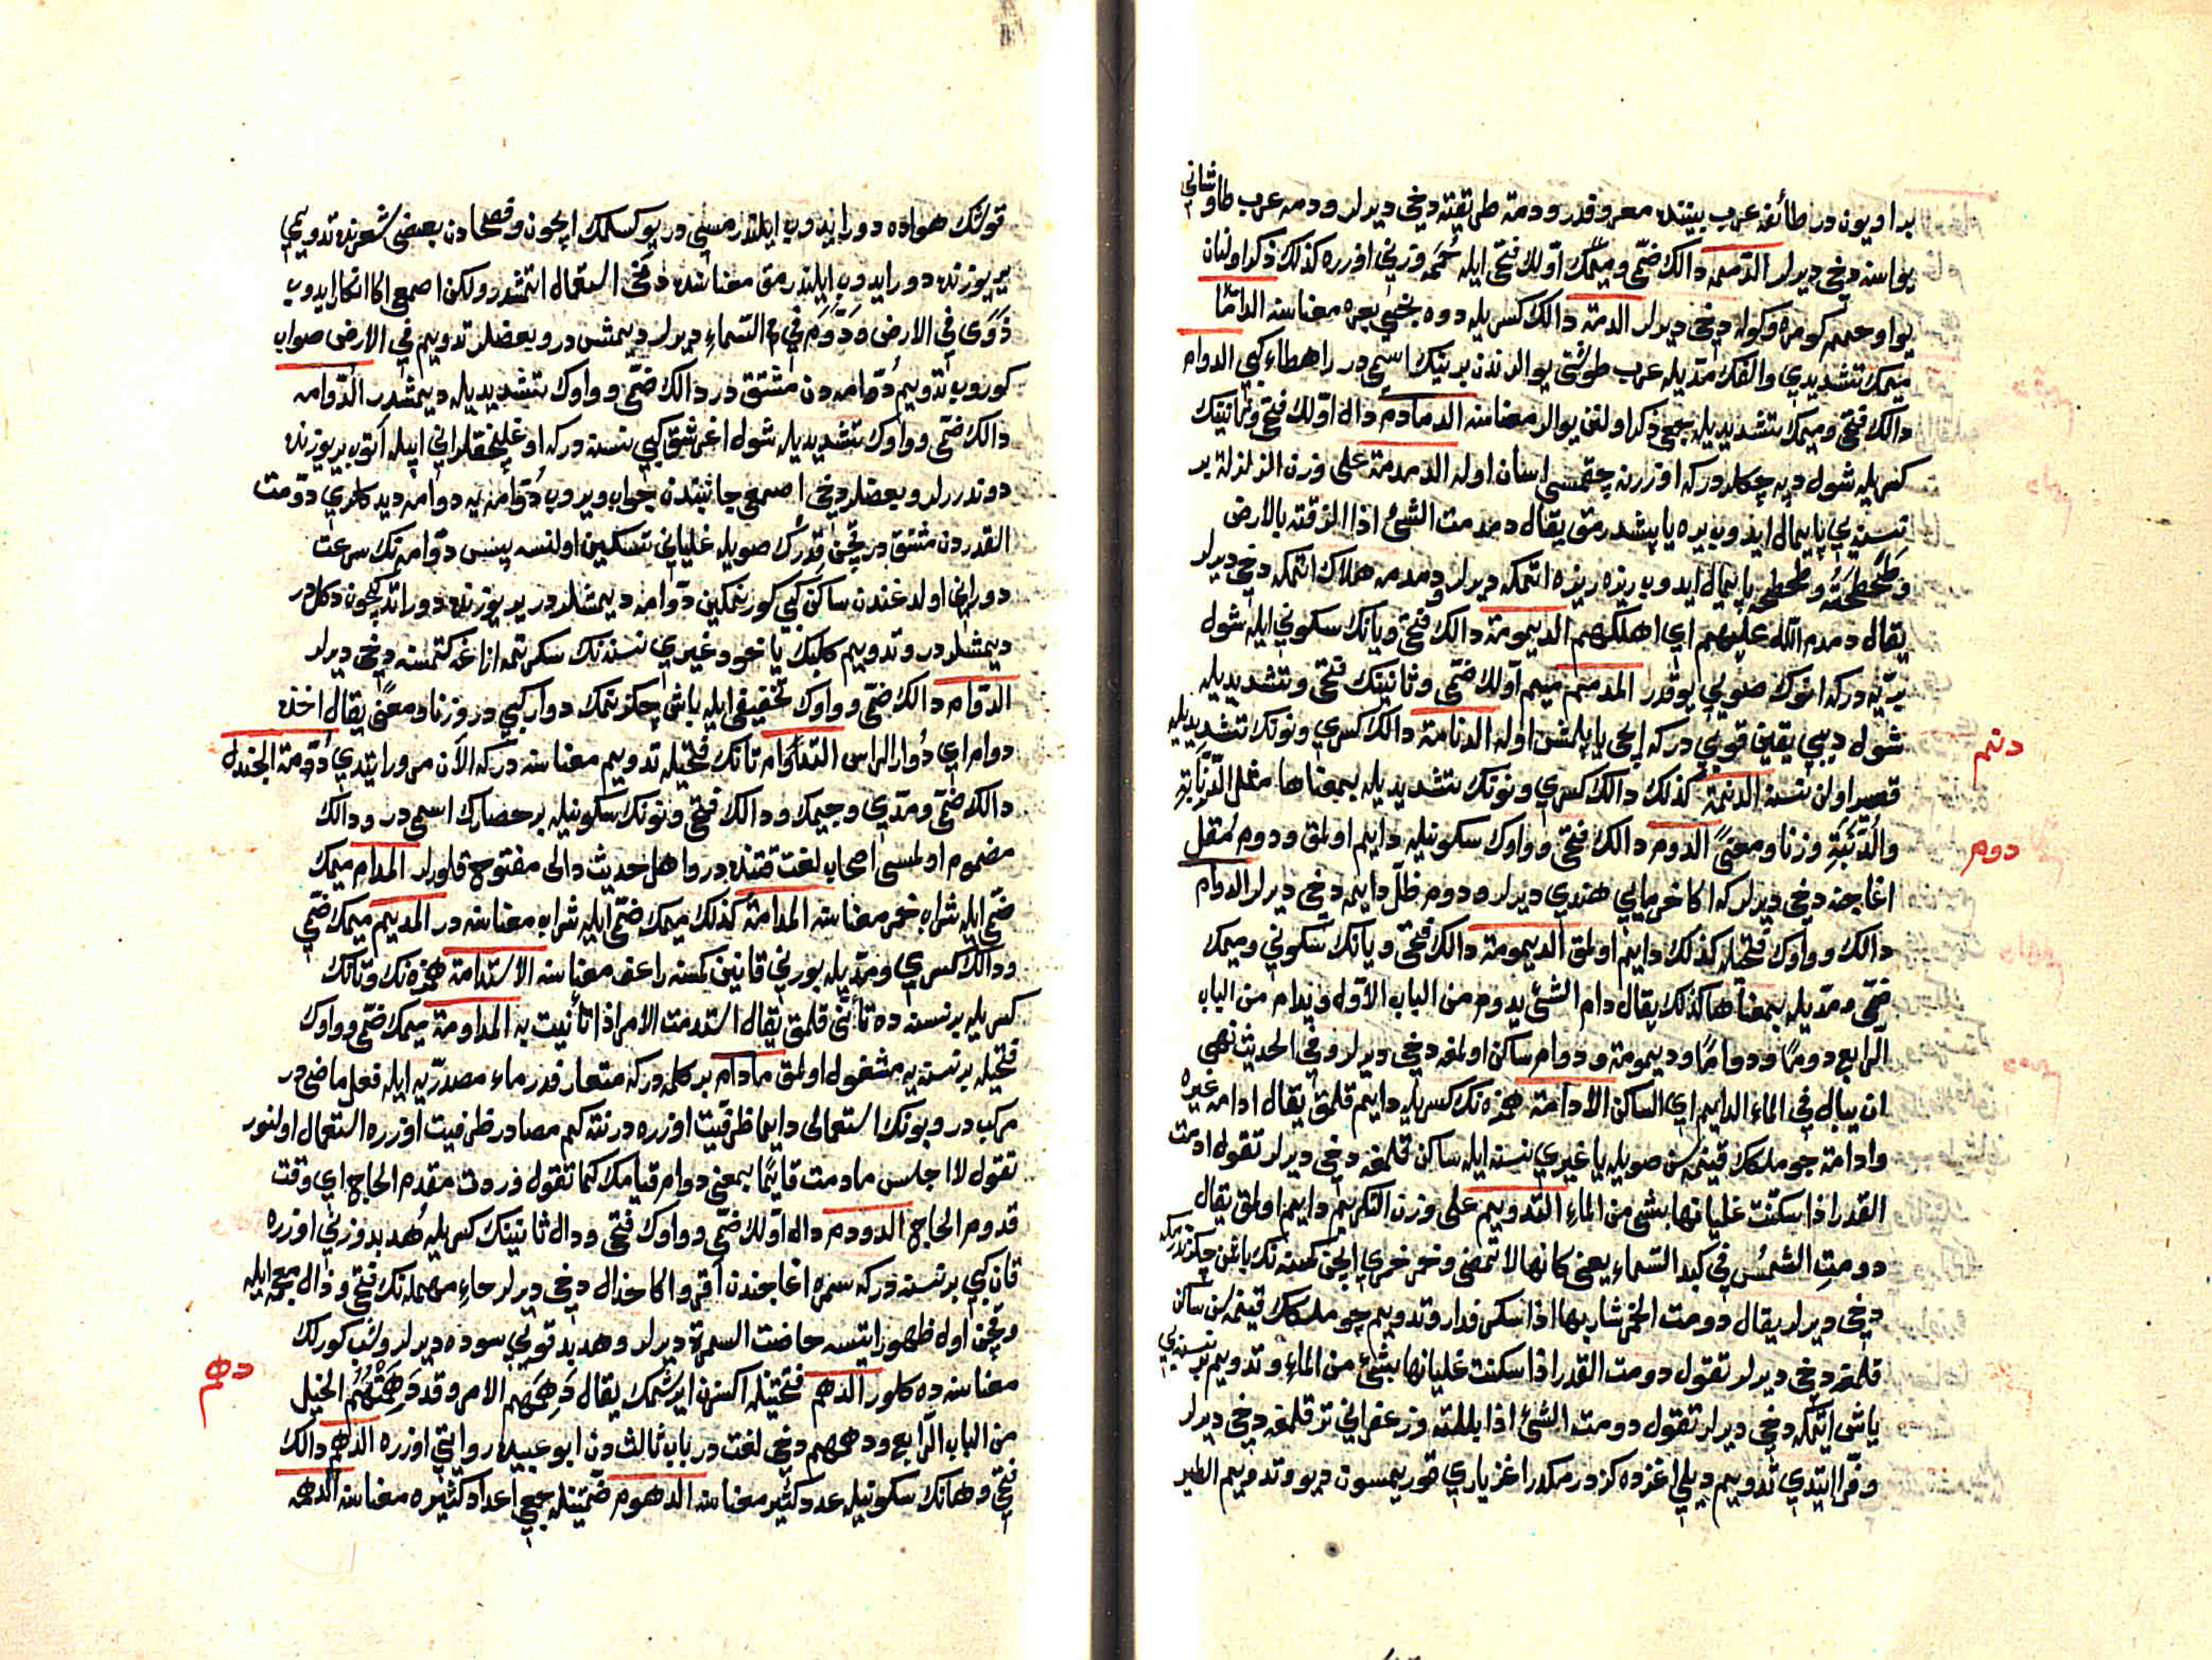 بر اويون در طائفۀ عرب بيننده معروفدر ودمة طريقته دخى ديرلر ودمه عرب طاوشانى
يواسنه دخى ديرلر الدممه دالك ضمى وميمك اولك فتحى ايله حُمَمَه وزنى اوزره كذلك ذكر اولنان
يواو حممه كومره وكوله دخى ديرلر الدمة دالك كسريله دوه بعره معناسنه الدامّا
ميمك تشديدى والفك مديله عرب طوشنى يوالرندن برينك اسمى در راهطاء كبى الدوام
دالك فتحى وميمك تشديديله جمعى ذكر اولنن يوالر معناسنه الدمادم دال اولك فتحى وثانينك
كسريله شول دپه جكلردركه اوزرينه چقمسى اسان اوله الدمدمة على وزن الزلزلة بر
نسنه يى پايمال ايدوب يره ياپشدرمق يقال دمدمت الشئ اذا الزقته بالارض
وطحطحته وطحطحه پايمال ايدوب ريزه ريزه اتمكه ديرلر ودمدمه هلاك اتمكه دخى ديرلر
يقال دمدم الله عليهم اى اهلكهم الديمومة دالك فتحى ويانك سكونى ايله شول
بريه دركه انوك صويى يوقدر المدمم ميم اولك ضمى وثانينك فتحى وتشديديله
شول ديبى يقين قويى دركه ايچى ياپلمش اوله الدنامة دالك كسرى ونونك تشديديله
قصير اولن نسنه الدنمة كذلك دالك كسرى ونونك تشديديله بمعناها مثل الدِّنّابَةِ
والدِّنَّبَةِ وزنا ومعنىً الدوم دالك فتحى وواوك سكونيله دايم اولمق ودوم مُقل
اغاجنه دخى ديرلركه اكا خرماى هندى ديرلر ودوم ظلّ دايمه دخى ديرلر الدوام
دالك وواوك فتحيله كذلك دايم اولمق الديمومة دالك فتحى ويانك سكونى وميمك
ضمى ومديله بمعناها كذلك يقال دام الشئ يدوم من الباب الاول ويدام من الباب
الرابع دومًا ودوامًا وديمومة ودوام ساكن اولمغه دخى ديرلر وفى الحديث نهى
ان يبال فى الماء الدايم اى الساكن الادامة همزه نك كسريله دايم قلمق يقال ادامه غيره
وادامة چوملكك قينمه سن صويله يا غيرى نسنه ايله ساكن قلمغه دخى ديرلر تقول ادمت
القدر اذا سكنت غليانها بشئ من الماء التدويم على وزن التكريم دايم اولمق يقال
دومتِ الشمسُ فى كبد السماء يعنى كانها لا تمضى وخمر خمرى ايچن كمسنه نك باشن چكزندرمكه
دخى ديرلر يقال دومت الخمر شاربها اذا سكر فدار وتدويم چوملكك قينمه سن ساكن
قلمغه دخى ديرلر تقول دومت القدر اذا سكنت غليانها بشئ من الماء وتدويم بر نسنه يى
ياش ايتمكه دخى ديرلر تقول دومت الشئ اذا بللته وزعفرانى تر قلمغه دخى ديرلر
وفرا ايتدى تدويم ديلى اغزده كزدرمكدر اغز يارى قوريمسون ديو وتدويم الطير
دنم
دوم
قوشك هواده دور ايدوب ايلندرمسى در يوكسلمك ايچون وفصحادن بعضى شعرنده تدويمى
ير يوزنده دور ايدوب ايلندرمق معناسنده دخى استعمال اتمشدر ولكن اصمعى اكا انكار ايدوب
دَوّى فى الارض ودَوَّم فى السماء ديرلر ديمشدر وبعضلر تدويم فى الارض صواب
كوروب تدويم دوّامه دن مشتق در دالك ضمى وواوك تشديديله ديمشدر الدوامه
دالك ضمى وواوك تشديديله شول اغرشق كبى نسنه دركه اوغلنجقلر انى ايپله اتوب ير يوزنده
دوندررلر وبعضلر دخى اصمعى جانبندن جواب ويروب دُوّامه يه دوامه ديدكلرى دوّمت
القدردن مشتق در قچن قِدرُك صويله غليانى تسكين اولنسه پس دوّامه نك سرعت
دورانى اولدغندن ساكن كبى كورنمكين دوّامه ديمشلردر ير يوزنده دور اتدكيچون دكلدر
ديمشلردر وتدويم كلبك ياخود غيرى نسنه نك سكرتمه ازاغه كتمسنه دخى ديرلر
الدوام دالك ضمى وواوك تخفيفى ايله باش چكزنمك دوار كبى در وزنا ومعنىً يقال اخذه
دوام اى دُوار الراس التدوام تانك فتحيله تدويم معناسنه در كه الآن مرور ايتدى دُوَمة الجندل
دالك ضمى ومدى وجيمك ودالك فتحى ونونك سكونيله بر حصارك اسمى در ودالك
مضموم اولمسى اصحاب لغت قتنده در واهل حديث دالى مفتوح قلورلر المدام ميمك
ضمى ايله شراب خمر معناسنه المدامة كذلك ميمك ضمى ايله شراب معناسنه در المديم ميمك ضمى
ودالك كسرى ومديله بورنى قانين كمسنه راعف معناسنه الاستدامة همزه نك وتانك
كسريله بر نسنه ده تأنى قلمق يقال استدمت الامر اذا تأنيت به المداومة ميمك ضمى وواوك
فتحيله بر نسنه يه مشغول اولمق مادام بر كلمه دركه متعارفدر ماء مصدريه ايله فعل ماضى در
مركبدر وبونك استعمالى دايما ظرفيت اوزره در نته كم مصادر ظرفيت اوزره استعمال اولنور
تقول لا اجلس مادمت قايمًا بمعنى دوام قيامك كما تقول وردت مقدم الحاج اى وقت
قدوم الحاج الدودم دال اولك ضمى وواوك فتحى ودال ثانينك كسريله هُدبد وزنى اوزره
قان كبى بر نسنه دركه سمره اغاجندن اقر واكا حذال دخى ديرلر حاء مهمله نك فتحى وذال معجمه ايله
وقچن اول ظهور ايتسه حاضت السمرة ديرلر وهدبد قويى سوده ديرلر وشب كورلك
معناسنه ده كلور الدهم فتحتيله اكسزن ايرشمك يقال دَهِمَهم الامر وقد دَهِمَتْهُم الخيل
من الباب الرابع ودهمهم دخى لغت در باب ثالث دن ابو عبيده روايتى اوزره الدهم دالك
فتحى وهانك سكونيله عدد كثير معناسنه الدهوم ضمتيله جمعى اعداد كثيره معناسنه الدهمه
دهم